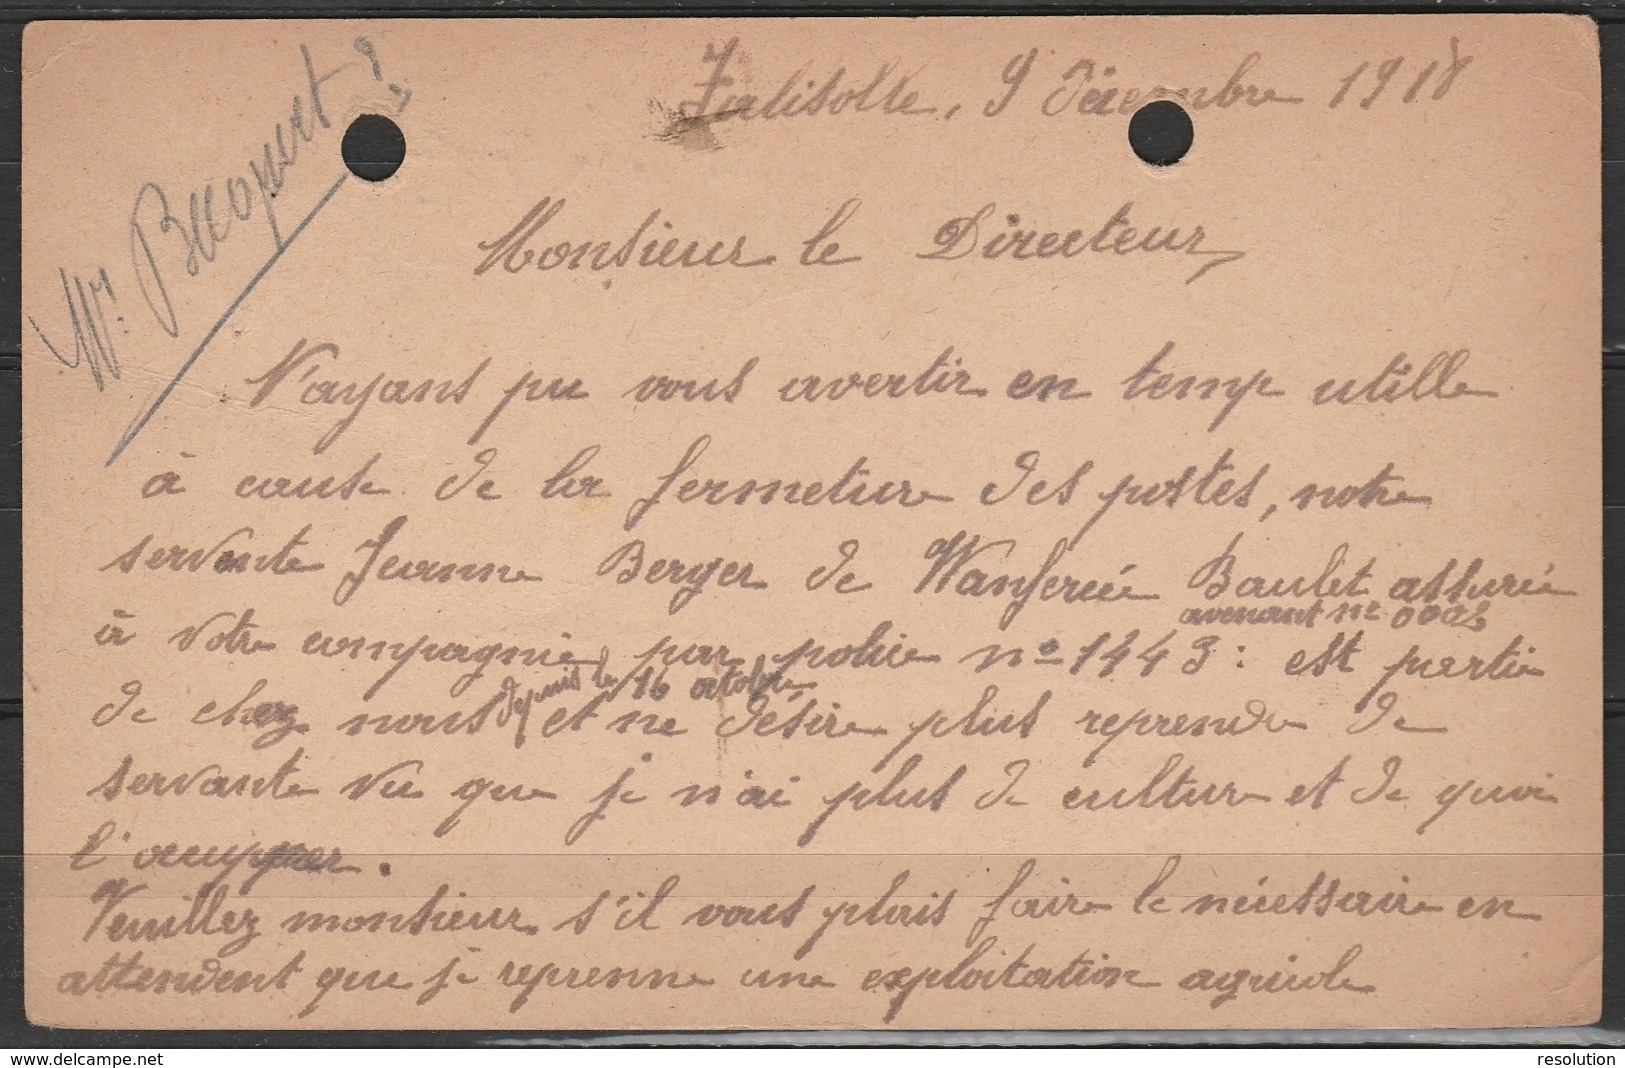 Mr. Becquet ?
Jalisolle, 9 Décembre 1918
Monsieur le Directeur,
N'ayans pu vous avertir en temp utille
à cause de la fermeture des postes, notre
servente Jeanne Berger de Wanfercée Baulet assurée
avenant no
à votre compagnie par police no 1443 : est partie
depuis le 16 octobre
de chez nous et ne désire plus reprendre de
servante vu que je n'ai plus de culture et de quoi
l'occupper.
Veuillez monsieur s'il vous plais faire le nécessaire en
attendent que je reprenne une exploitation agricole
delcampe.net
resolution